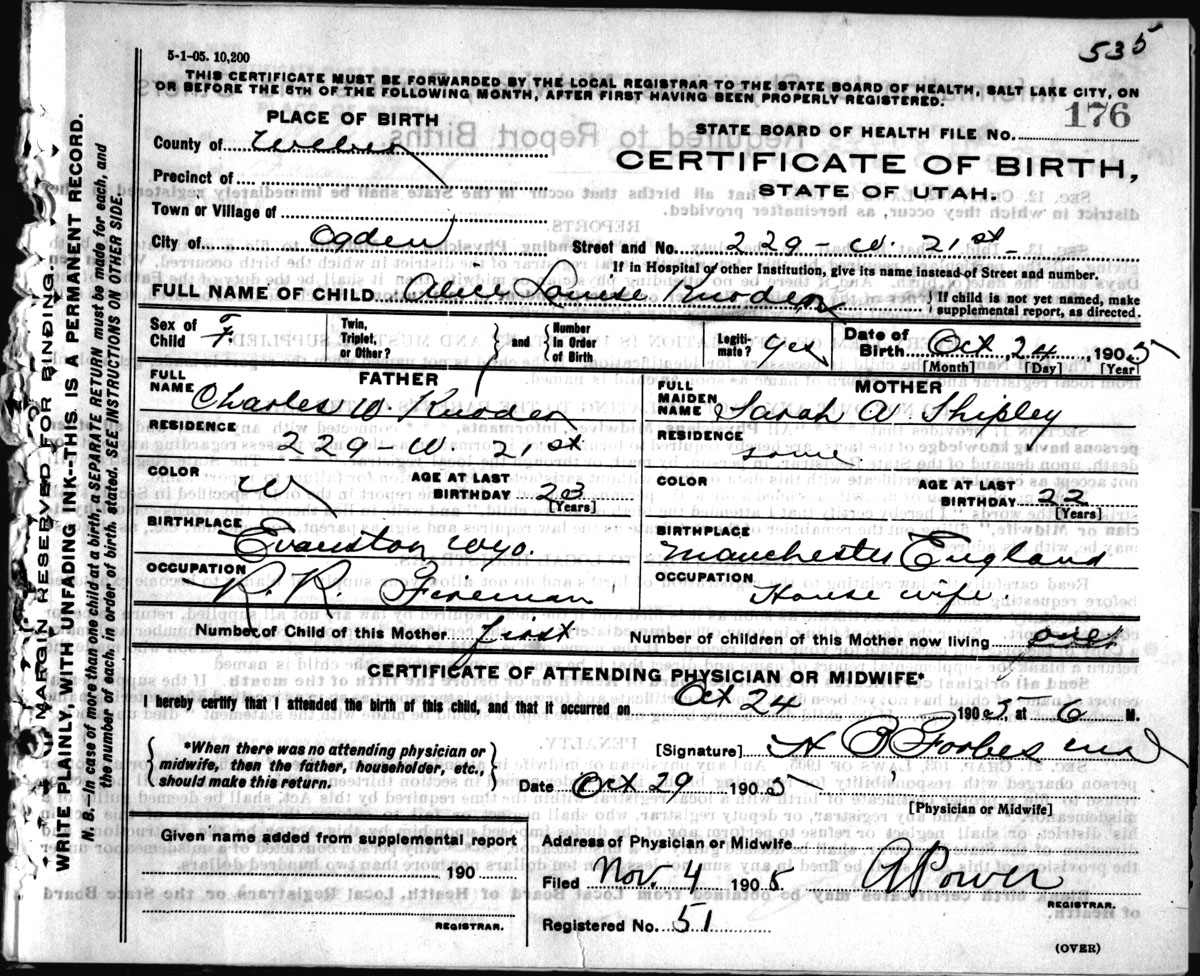 535
5-1-05. 10,200
THIS CERTIFICATE MUST BE FORWARDED BY THE LOCAL REGISTRAR TO THE STATE BOARD OF HEALTH, SALT LAKE CITY, ON
OR BEFORE THE 5TH OF THE FOLLOWING MONTH, AFTER FIRST HAVING BEEN PROPERLY REGISTERED.
176
PLACE OF BIRTH
STATE BOARD OF HEALTH FILE NO.
County of Weber
CERTIFICATE OF BIRTH,
Precinct of
STATE OF UTAH.
Town or Village of
City of Ogden Street and No. 229 - W. 21st
If in Hospital or other Institution, give its name instead of Street and number.
FULL NAME OF CHILD Alice Louise Knoder } If child is not yet named, make
supplemental report, as directed.
Sex of Child F. Twin, Triplet, or Other? } and { Number In Order of Birth Legiti-mate? yes Date of Birth Oct 24, 1905
[Month] [Day] [Year]
FATHER MOTHER
FULL NAME Charles W. Knoder FULL MAIDEN NAME Sarah A. Shipley
RESIDENCE 229 - W. 21st RESIDENCE same
COLOR W AGE AT LAST BIRTHDAY 23 [Years] COLOR AGE AT LAST BIRTHDAY 22 [Years]
BIRTHPLACE Evanston Wyo. BIRTHPLACE Manchester England
OCCUPATION R. R. Fireman OCCUPATION House wife.
Number of Child of this Mother first Number of children of this Mother now living one
CERTIFICATE OF ATTENDING PHYSICIAN OR MIDWIFE*
I hereby certify that I attended the birth of this child, and that it occurred on Oct 24 1905 at 6 M.
{ *When there was no attending physician or
midwife, then the father, householder, etc.,
should make this return. }
[Signature] H B Forbes md
Date Oct 29 1905
[Physician or Midwife]
Given name added from supplemental report
190
REGISTRAR.
Address of Physician or Midwife
Filed Nov. 4 1905 A Power
REGISTRAR.
Registered No. 51
(OVER)
MARGIN RESERVED FOR BINDING.
WRITE PLAINLY, WITH UNFADING INK--THIS IS A PERMANENT RECORD.
N. B.—In case of more than one child at a birth, a SEPARATE RETURN must be made for each, and
the number of each, in order of birth, stated. SEE INSTRUCTIONS ON OTHER SIDE.